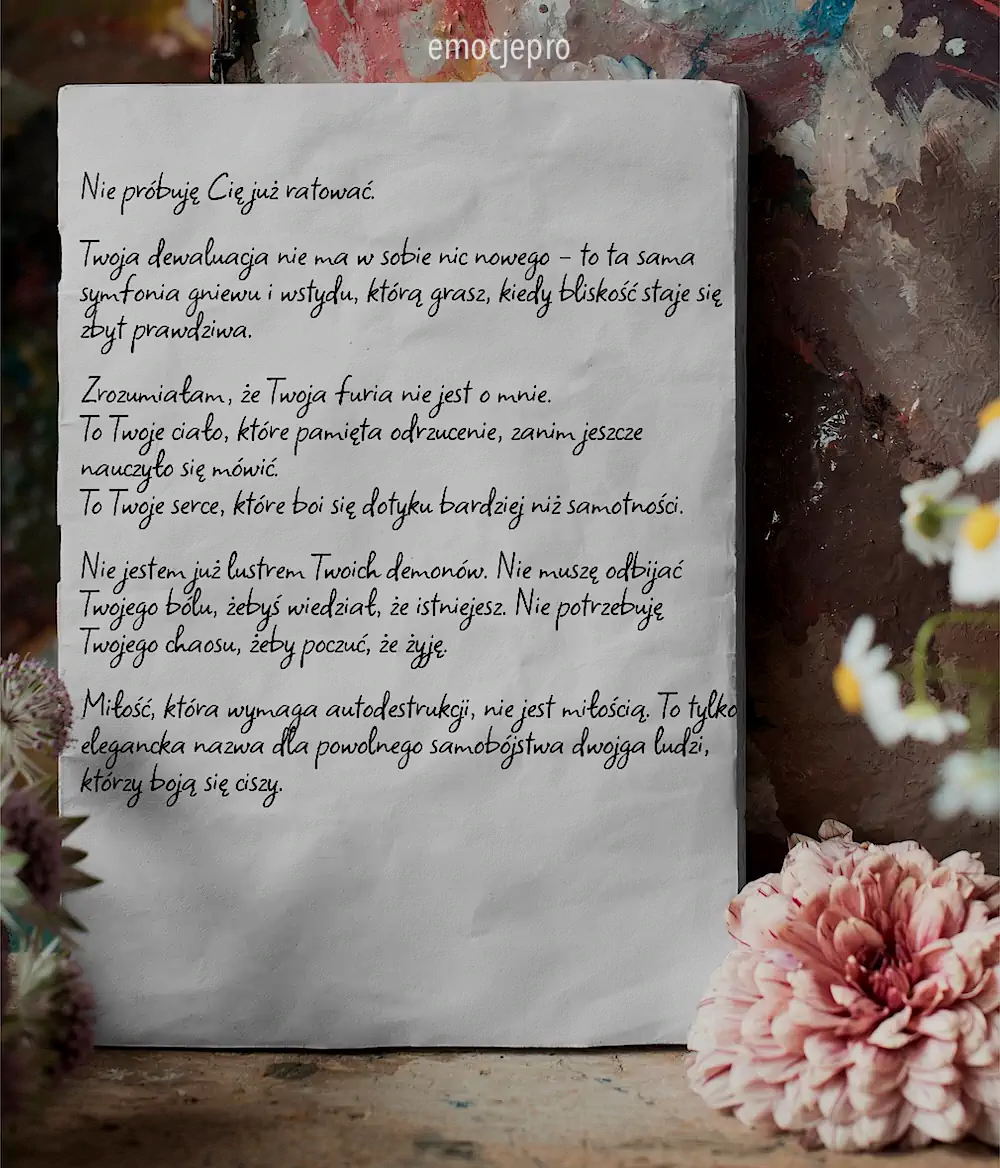 emocjepro
Nie próbuję Cię już ratować.
Twoja dewaluacja nie ma w sobie nic nowego – to ta sama
symfonia gniewu i wstydu, którą grasz, kiedy bliskość staje się
zbyt prawdziwa.
Zrozumiałam, że Twoja furia nie jest o mnie.
To Twoje ciało, które pamięta odrzucenie, zanim jeszcze
nauczyło się mówić.
To Twoje serce, które boi się dotyku bardziej niż samotności.
Nie jestem już lustrem Twoich demonów. Nie muszę odbijać
Twojego bólu, żebyś wiedział, że istniejesz. Nie potrzebuję
Twojego chaosu, żeby poczuć, że żyję.
Miłość, która wymaga autodestrukcji, nie jest miłością. To tylko
elegancka nazwa dla powolnego samobójstwa dwojga ludzi,
którzy boją się ciszy.